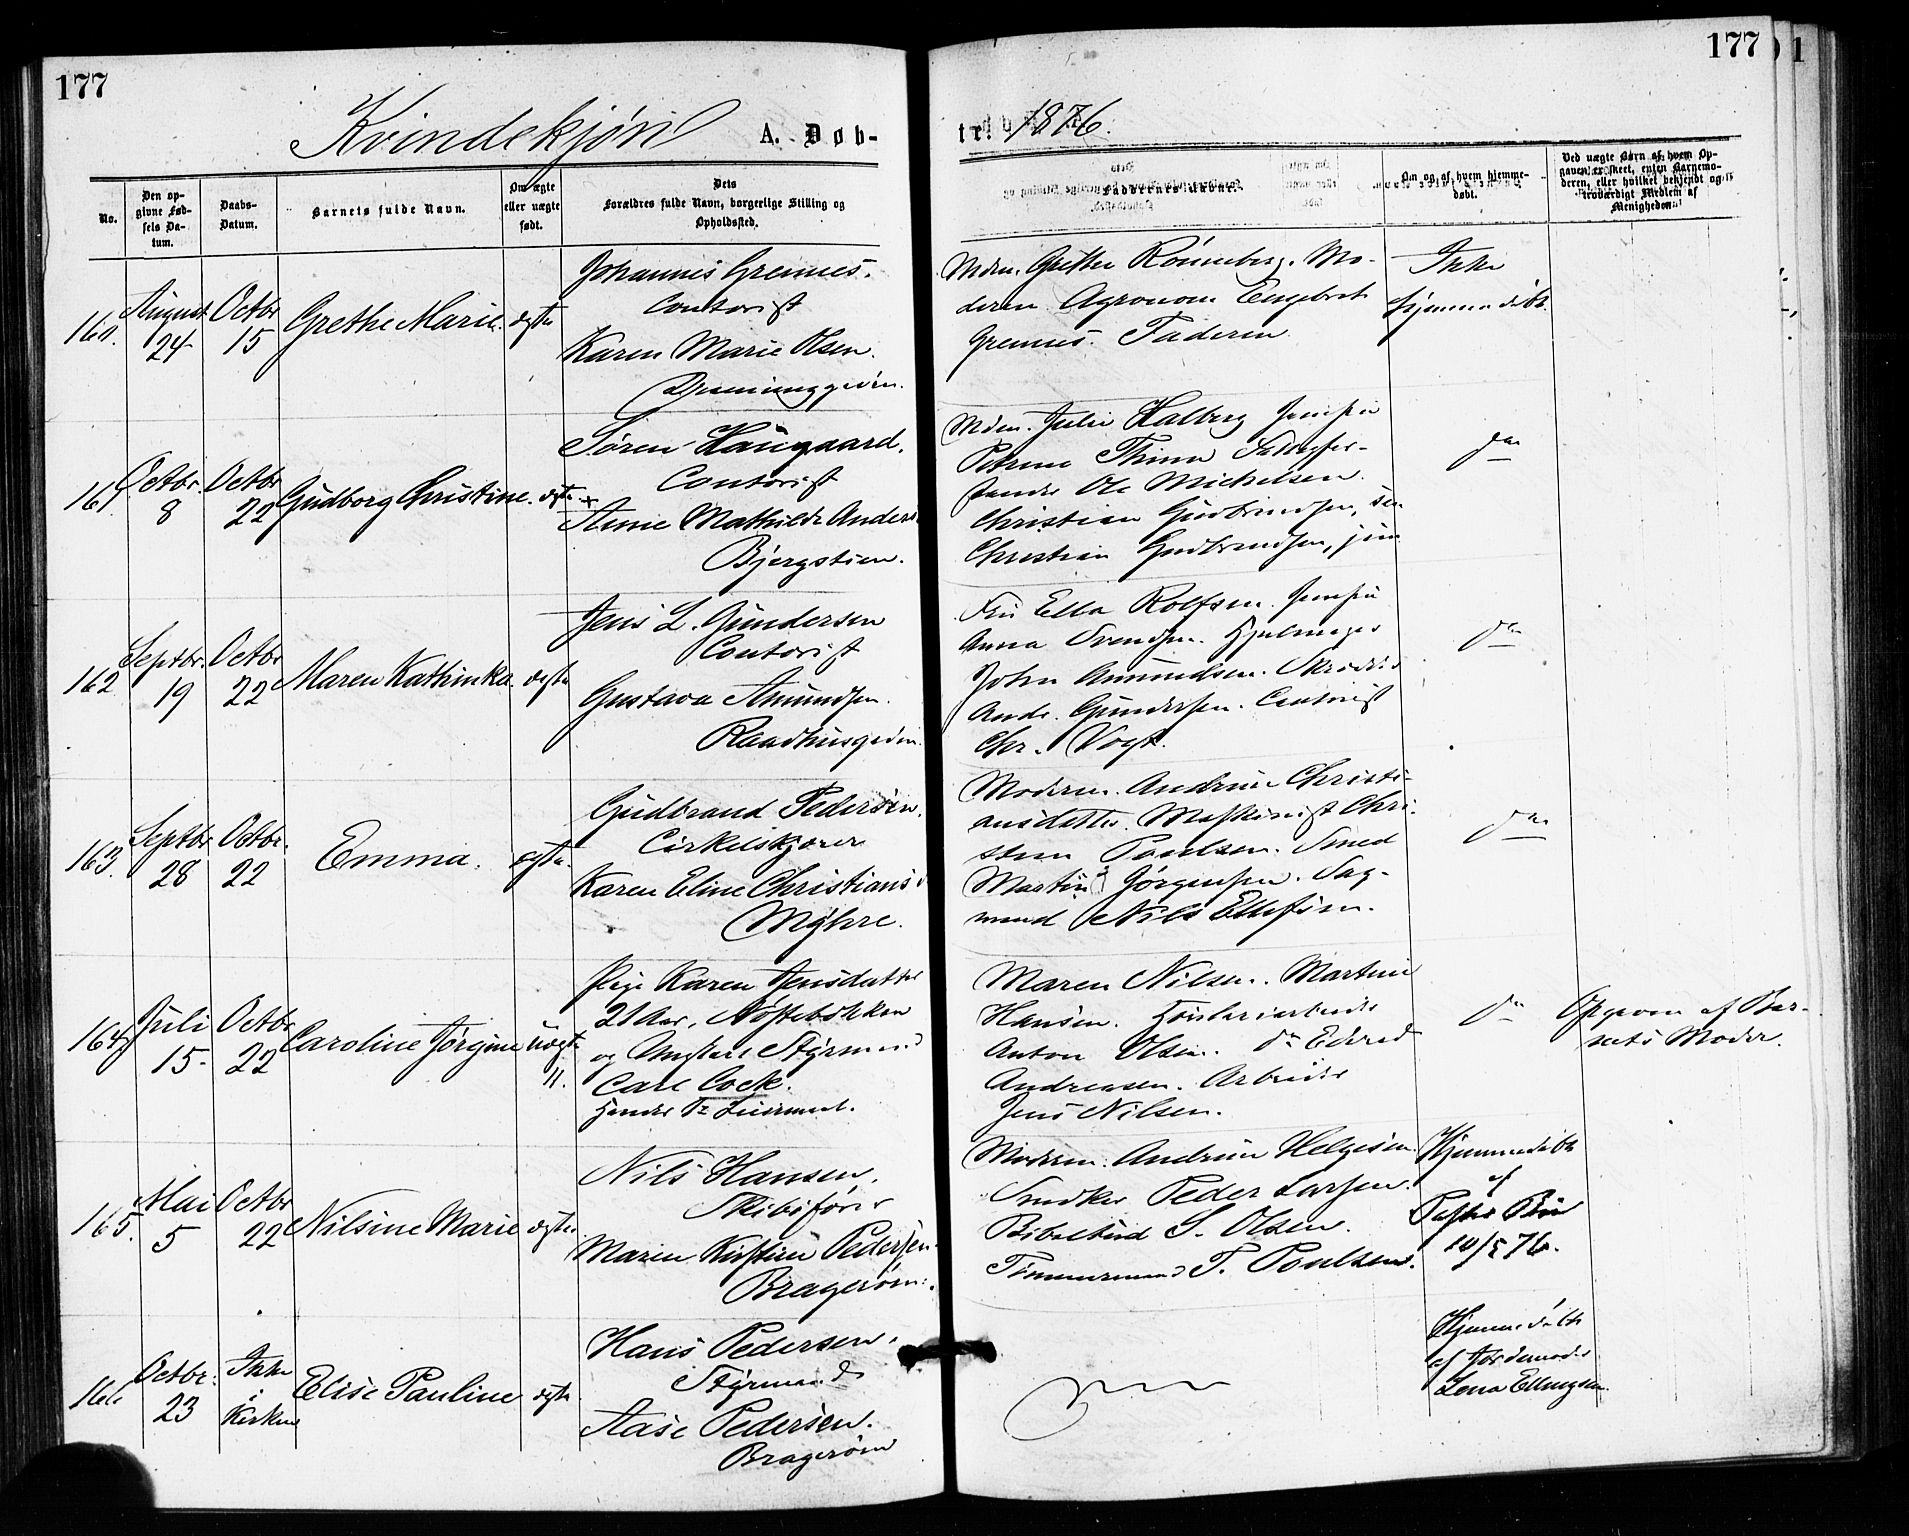 177
177
Kvindekjøn
A. Døb-
tr. 1876.
No.
Den op-
givne Fød-
sels Da-
tum.
Daabs-
Datum.
Barnets fulde Navn.
Om ægte
eller uægte
født.
Dets
Forældres fulde Navn, borgerlige Stilling og
Opholdssted.
Faddernes Navne.
Om og af hvem hjemme-
døbt.
Ved uægte Børn af hvem Op-
gaven er skeet, enten Barnemo-
deren, eller hvilket bekjendt og
troværdigt Medlem af
Menigheden.
160.
August
24
Octbr
15
Grethe Marie.
ægte
Johannes Grennes.
Contorist
Karen Marie Olsen.
Mdm. Grethe Rønneberg. Mo-
deren Agronom Engebret
Grennes. Faderen
Ikke
hjemmedøbt.
161
Octbr.
8
Octbr
22
Gudborg Christine.
ægte
Søren Haugaard.
Contorist
Anne Mathilde Anders
Bjergstien.
Mdm. Julie Halberg Jomfru
Petrine Thime
Ole Michelsen.
Christian Gudbrandsen, sen
Christian Gudbrandsen, jun
do
162
Septbr.
19
Octbr
22
Maren Kathinka.
ægte
Jens L. Gundersen
Contorist
Gustava Amundsen.
Raadhusgaden.
Fru Ella Rolfsen. Jomfru
Anna Svendsen.
John Amundsen.
Andr. Gundersen. Contorist
Chr. Vogt.
do
163.
Septbr
28
Octbr.
22
Emma.
ægte.
Gudbrand Pedersen.
Cirkelskjærer
Karen Eline Christiansd
Myhre.
Moderen. Andrine Christi-
ansdatter. Maskinist Chri-
stian Paulsen. Smed
Martin Jørgensen. Sag-
mand Nils Ellefsen.
do
164
Juli
15
Octbr
22
Caroline Jørgine
uægte
11.
Pige Karen Jensdatter
21 Aar, Nøstebakken
og Ungkarl Styrmand
Carl Cock.
Hendes 1ste Leiermaal.
Maren Nilsen. Martine
Hansen.
Anton Olsen. do Edvard
Andreasen. Arbeider
Jens Nilsen.
do
Opgiven af Bar-
nets Moder.
165.
Mai
5
Octbr
22
Nilsine Marie
ægte.
Nils Hansen.
Skibsfører
Maren Kirstine Pedersen.
Bragerøen.
Moderen. Andrine Helgesen
Snedker Peder Larsen.
Bibelbud S. Olsen.
Tømmermand T. Poulsen.
Hjemmedøbt
af
10/5 76.
166
Octbr.
23
Ikke
i
Kirken
Elise Pauline
ægte
Hans Pedersen.
Styrmand
Aase Pedersen.
Bragerøen
Hjemmedøbt
af Jordemoder
Lena Ellingsen.